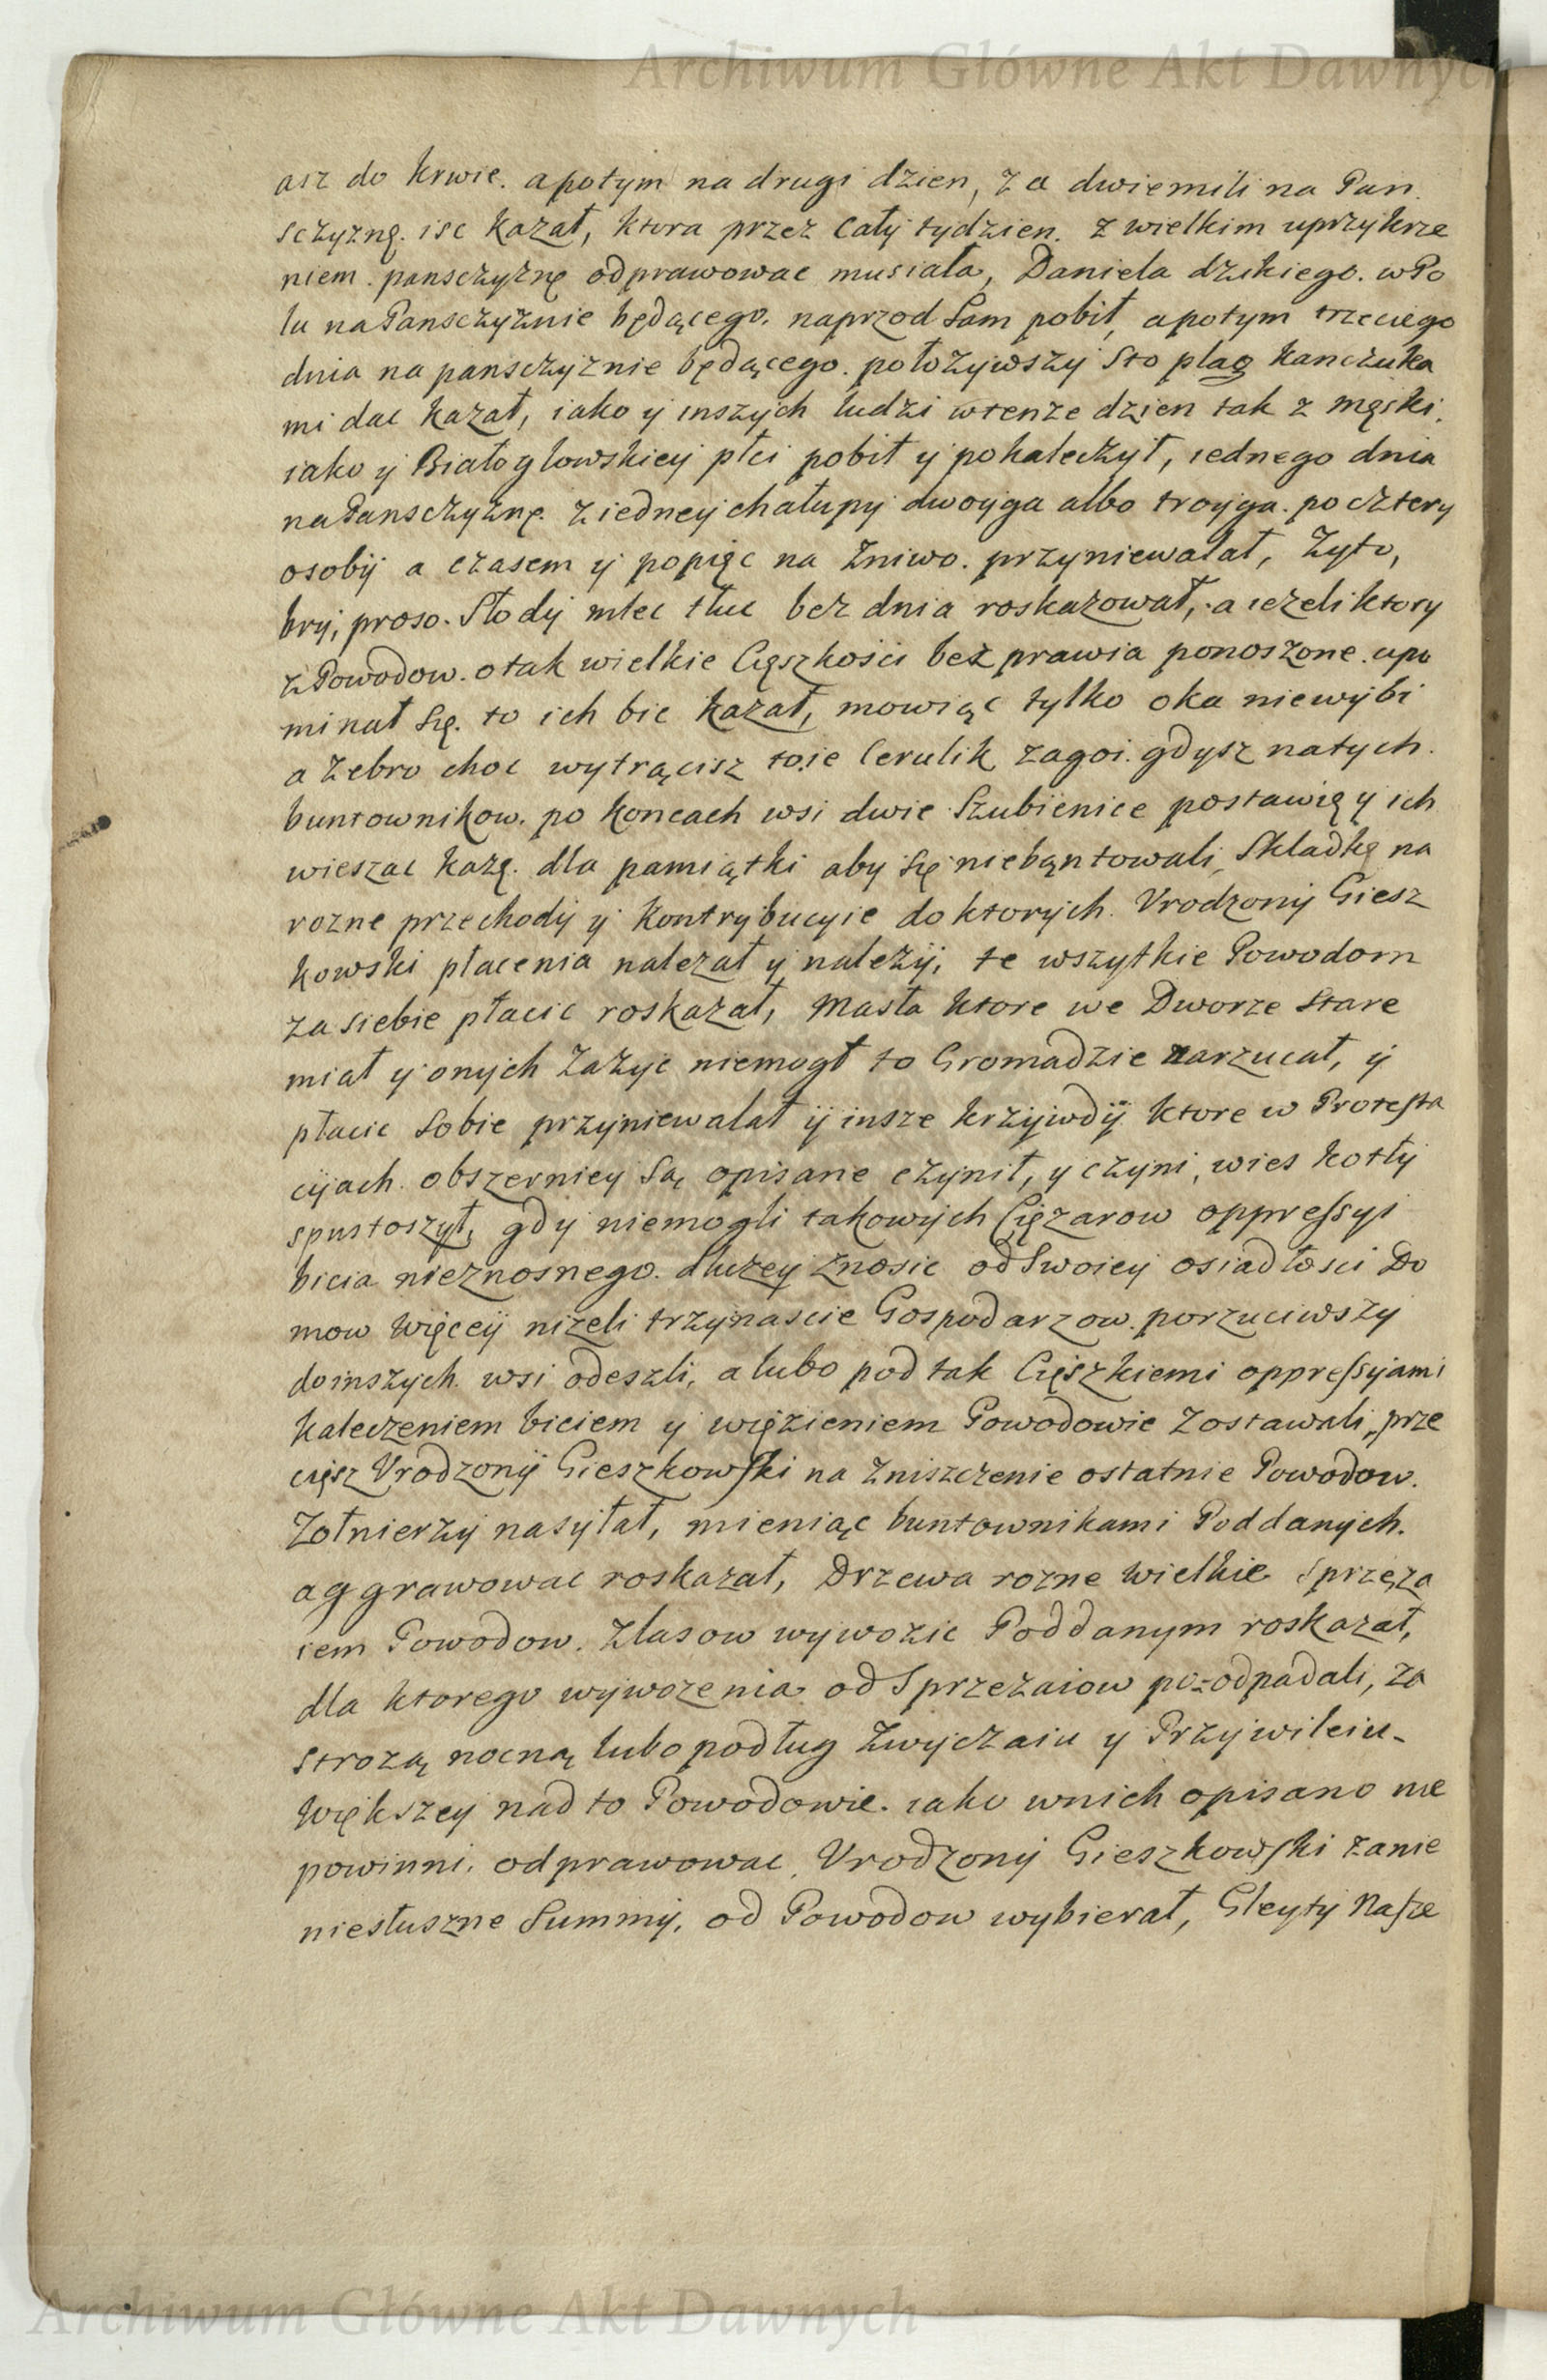 Archiwum Główne Akt Dawnych
asz do krwie. apotym na drugi dzien, za dwiemili na Pan
sczyznę. isc kazał, ktora przez cały tydzien. z wielkim uprzykrze
niem. pansczyznę odprawowac musiała, Daniela dzikiego. w Po
lu na Pansczyznie będącego. naprzod sam pobił, apotym trzeciego
dnia na pansczyznie będącego. położywszy sto plag kanczuka
mi dac kazał, iako y inszych ludzi wtenze dzien tak z męski.
iako y Białogłowskiey płci pobił y pokaleczył, iednego dnia
na Pansczyznę. z iedney chałupy dwoyga albo troyga. po cztery
osoby a czasem y popięc na żniwo. przyniewalał, żyto,
kry, proso. Słody mlec tłuc bez dnia roskazował, a iezeli ktory
z Powodow. o tak wielkie Cięszkości bez prawia ponoszone. upo
minał się. to ich bic kazał, mowiąc tylko oka niewybi
a żebro choc wytrącisz to ie Cerulik zagoi. gdysz natych.
buntownikow. po koncach wsi dwie Szubienice postawię y ich
wieszac każę. dla pamiątki aby się niebąntowali, Składkę na
rozne przechody y kontrybucyie do ktorych. Vrodzony Giesz
kowski płacenia nalezał y nalezy, te wszytkie Powodom
za siebie płacic roskazał, Masła ktore we Dworze stare
miał y onych zażyc niemogł to Gromadzie narzucał, y
płacic sobie przyniewalał y insze krzywdy ktore w Protesta
cyjach. obszerniey są opisane czynił, y czyni, wies kotły
spustoszył, gdy niemogli takowych Ciężarow oppressyi
bicia nieznosnego. dłuzey znosic od swoiey osiadłosci Do
mow więcey nizeli trzynascie Gospodarzow. porzuciwszy
do inszych. wsi odeszli, a lubo pod tak Cięszkiemi oppressyjami
kaleczeniem biciem y więzieniem Powodowie zostawali, prze
cięsz Vrodzony Gieszkowski na zniszczenie ostatnie Powodow.
Żołnierzy nasyłał, mieniąc buntownikami Poddanych.
aggrawowac roskazał, Drzewa rozne wielkie sprzęża
iem Powodow. z lasow wywozic Poddanym roskazał,
dla ktorego wywozenia od sprzeżaiow po=odpadali, za
strozą nocną lubo podług zwyczaiu y Przywileiu-
większey nad to Powodowie. iako wnich opisano nie
powinni. odprawowac, Vrodzony Gieszkowski zanie
niesłuszne summy, od Powodow wybierał, Gleyty Nasze
Archiwum Główne Akt Dawnych